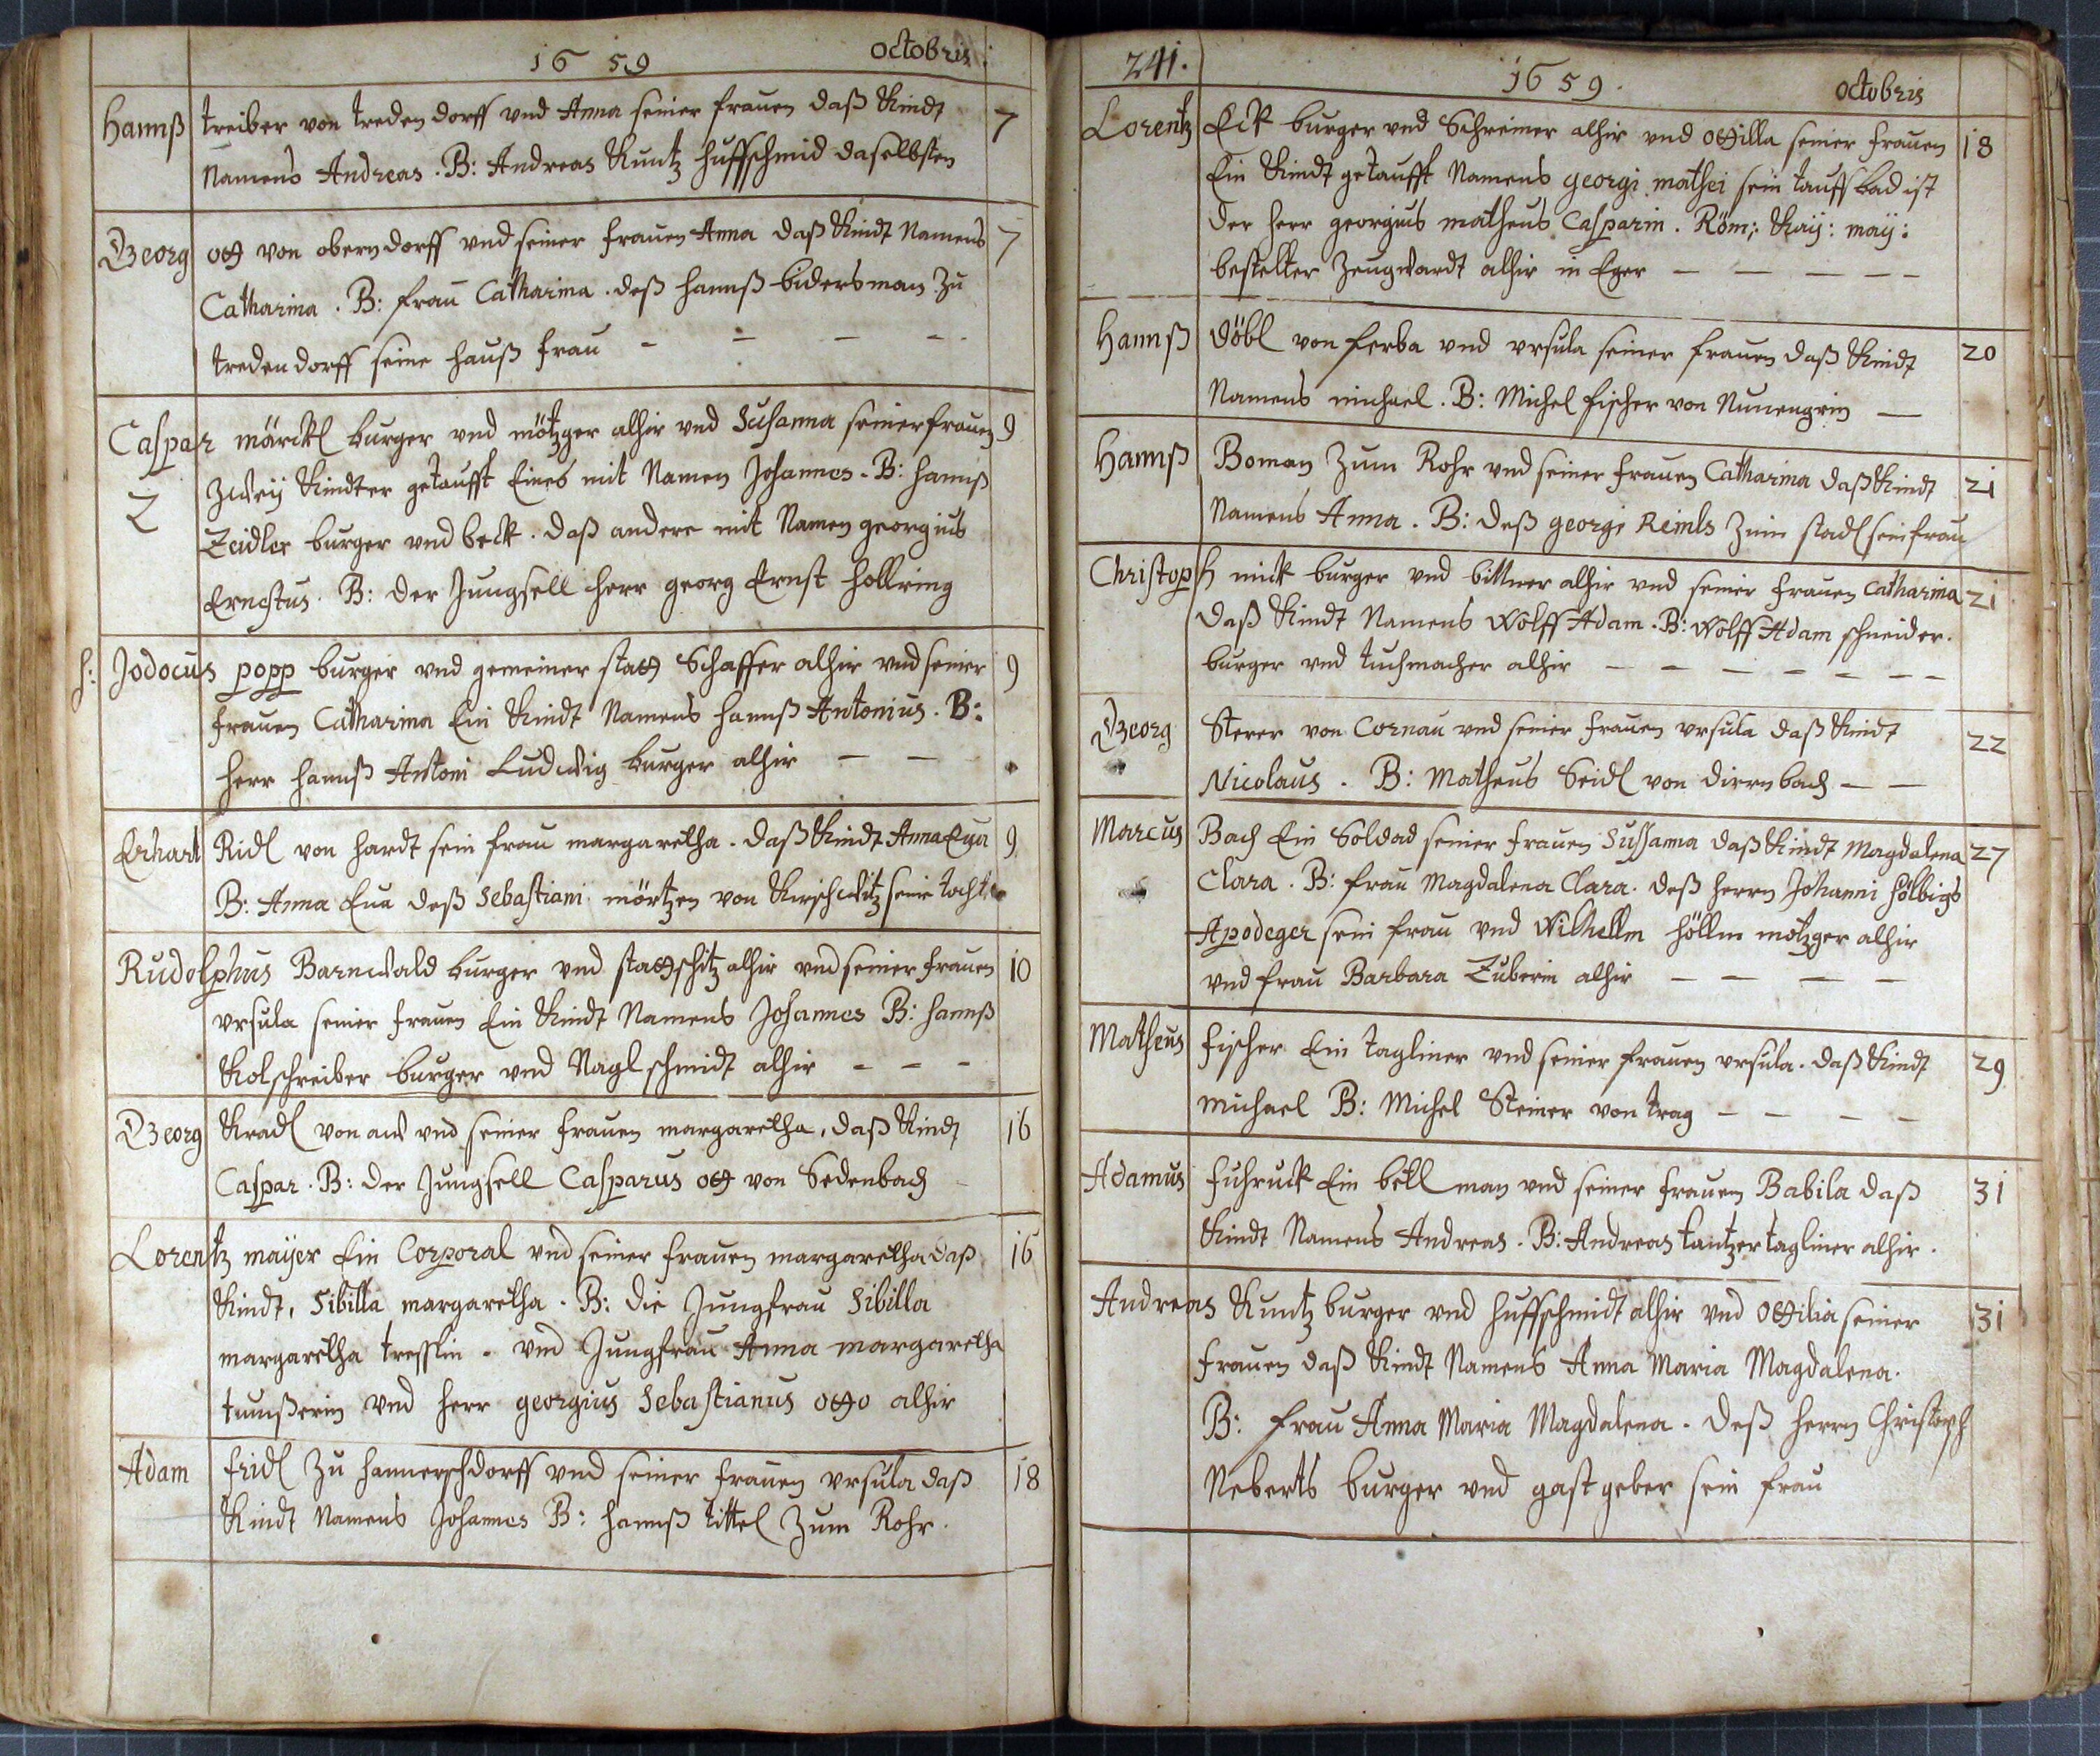 1659 octobris
Hannß treiber von treden dorff vnd Anna seiner frauen daß Kindt 7
Namens Andreas . B: Andreas Kuntz huffschmid daselbsten
Georg ott von obern dorff vnd seiner frauen Anna daß Kindt Namens 7
Catharina . B: frau Catharina . deß hannß bidersman zu
treden dorff seine hauß frau - - - -
Caspar märckl burger vnd mötzger alhir vnd Susanna seiner frauen 9
2 zweÿ Kindter getaufft Eines mit Namen Johannes . B: hannß
Zeidler burger vnd beck . daß andere mit Namen georgius
Ernestus . B: der Jungsell herr georg Ernst hollring
h: Jodocus popp burger vnd gemeiner statt Schaffer alhir vnd seiner 9
frauen Catharina Ein Kindt Namens hannß Antonius . B:
herr hannß Antoni Ludwig burger alhir — —
Erhart Ridl von hardt sein frau margaretha . daß Kindt Anna Eua 9
B: Anna Eua deß Sebastiani mörtzen von Kirschwitz seine tochter
Rudolphus Barnwald burger vnd stattschitz alhir vnd seiner frauen 10
vrsula seiner frauen Ein Kindt Namens Johannes B: hannß
Kolschreiber burger vnd Nagl schmidt alhir - - -
Georg Kradl von aw vnd seiner frauen margaretha , daß Kindt 16
Caspar . B: der Jungsell Casparus ott von Sedenbach
Lorentz maÿer Ein Corporal vnd seiner frauen margaretha daß 16
Kindt , Sibilla margaretha . B: die Jungfrau Sibilla
margaretha tresslin . vnd Jungfrau Anna margaretha
vnd herr georgius Sebastianus otto alhir
Adam fridl zu hannerschdorff vnd seiner frauen vrsula daß 18
Kindt Namens Johannes B: hannß tittel zum Rohr .
241. 1659. octobris
Lorentz Eck burger vnd Schreiner alhir vnd ottilla seiner frauen 18
Ein Kindt getaufft Namens georgi mathei sein tauffbad ist
der herr georgius matheus Casparin . Röm: Kaÿ: maÿ:
bestelter Zeugwardt alhir in Eger — — — — —
Hannß döbl von ferba vnd vrsula seiner frauen daß Kindt 20
Namens michael . B: Michel fischer von Nunengrin —
Hannß Boman zum Rohr vnd seiner frauen Catharina daß Kindt 21
Namens Anna . B: deß georgi Reimls zum stadl sein frau
Christoph mick burger vnd bittner alhir vnd seiner frauen Catharina 21
daß Kindt Namens Wolff Adam . B: Wolff Adam schneider .
burger vnd tuchmacher alhir — — — — — — —
Georg Sterer von Cornau vnd seiner frauen vrsula daß Kindt 22
Nicolaus . B: Matheus Seidl von dirrnbach — —
Marcus Bach Ein Soldad seiner frauen Sussanna daß Kindt Magdalena 27
Clara . B: frau Magdalena Clara . deß herrn Johanni hölbigs
Apodeger sein frau vnd Wilhellm höllm mötzger alhir
vnd frau Barbara Zuberin alhir — — — —
Matheus fischer Ein tagliner vnd seiner frauen vrsula . daß Kindt 29
michael B: Michel Steiner von trag — — — —
Adamus fuhruck Ein bettl man vnd seiner frauen Babila daß 31
Kindt Namens Andreas . B: Andreas tantzer tagliner alhir .
Andreas Kuntz burger vnd huffschmidt alhir vnd ottilia seiner 31
frauen daß Kindt Namens Anna Maria Magdalena .
B: frau Anna Maria Magdalena . deß herrn Christoph
Neberts burger vnd gast geber sein frau